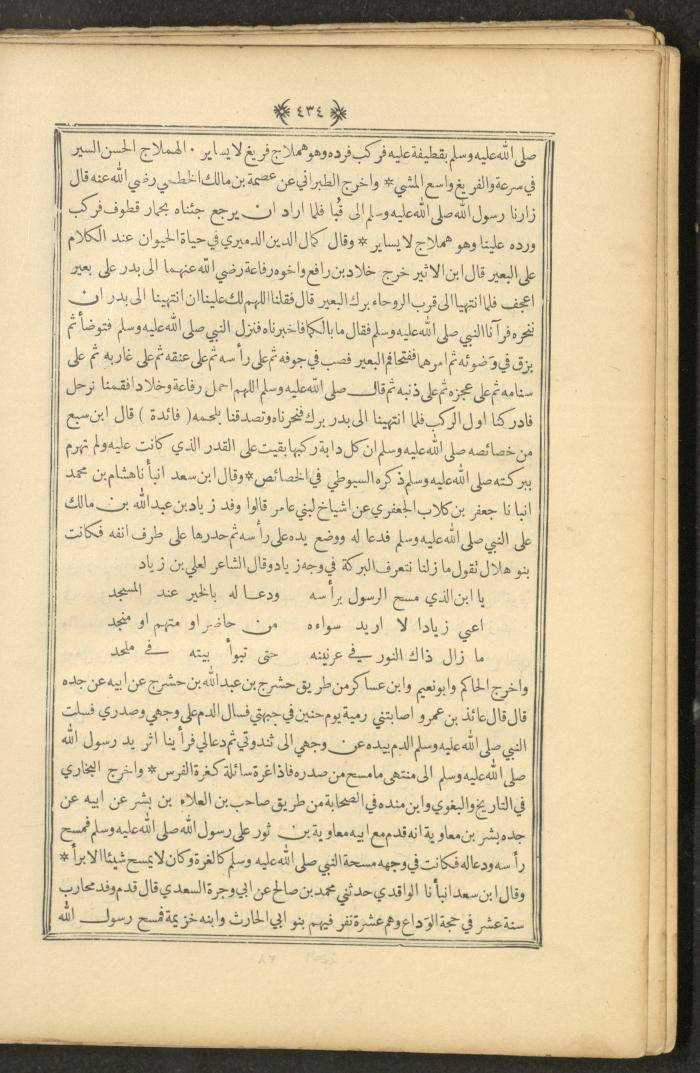 ﴿ ٤٣٤ ﴾
صلى الله عليه وسلم بقطيفة عليه فركب فرده وهو هملاج فريغ لا يساير ٠ الهملاج الحسن السير
في سرعة والفريغ واسع المشي * واخرج الطبراني عن عصمة بن مالك الخطمي رضي الله عنه قال
زارنا رسول الله صلى الله عليه وسلم الى قُبا فلما اراد ان يرجع جئناه بحمار قطوف فركب
ورده علينا وهو هملاج لا يساير * وقال كمال الدين الدميري في حياة الحيوان عند الكلام
على البعير قال ابن الاثير خرج خلاد بن رافع واخوه رفاعة رضي الله عنهما الى بدر على بعير
اعجف فلما انتهيا الى قرب الروحاء برك البعير قال فقلنا اللهم لك علينا ان انتهينا الى بدر ان
ننحره فرآنا النبي صلى الله عليه وسلم فقال ما بالكما فاخبرناه فنزل النبي صلى الله عليه وسلم فتوضأ ثم
بزق في وضوئه ثم امرهما ففتحا فم البعير فصب في جوفه ثم على رأسه ثم على عنقه ثم على غاربه ثم على
سنامه ثم على عجزه ثم على ذنبه ثم قال صلى الله عليه وسلم اللهم احمل رفاعة وخلادا فقمنا نرحل
فادركنا اول الركب فلما انتهينا الى بدر برك فنحرناه وتصدقنا بلحمه ( فائدة ) قال ابن سبع
من خصائصه صلى الله عليه وسلم ان كل دابة ركبها بقيت على القدر الذي كانت عليه ولم تهرم
ببركته صلى الله عليه وسلم ذكره السيوطي في الخصائص * وقال ابن سعد انبأنا هشام بن محمد
انبانا جعفر بن كلاب الجعفري عن اشياخ لبني عامر قالوا وفد زياد بن عبد الله بن مالك
على النبي صلى الله عليه وسلم فدعا له ووضع يده على رأسه ثم حدرها على طرف انفه فكانت
بنو هلال نقول ما زلنا نتعرف البركة في وجه زياد وقال الشاعر لعلي بن زياد
يا ابن الذي مسح الرسول برأسه ودعا له بالخير عند المسجد
اعني زيادا لا اريد سواءه من حاضر او متهم او منجد
ما زال ذاك النور في عرنينه حتى تبوأ بيته في ملحد
واخرج الحاكم وابو نعيم وابن عساكر من طريق حشرج بن عبد الله بن حشرج عن ابيه عن جده
قال قال عائذ بن عمرو اصابتني رمية يوم حنين في جبهتي فسال الدم على وجهي وصدري فسلت
النبي صلى الله عليه وسلم الدم بيده عن وجهي الى ثندوتي ثم دعا لي فرأينا اثر يد رسول الله
صلى الله عليه وسلم الى منتهى ما مسح من صدره فاذا غرة سائلة كغرة الفرس * واخرج البخاري
في التاريخ والبغوي وابن منده في الصحابة من طريق صاحب بن العلاء بن بشر عن ابيه عن
جده بشر بن معاوية انه قدم مع ابيه معاوية بن ثور على رسول الله صلى الله عليه وسلم فمسح
رأسه ودعا له فكانت في وجهه مسحة النبي صلى الله عليه وسلم كالغرة وكان لا يمسح شيئا الا برأ *
وقال ابن سعد انبأنا الواقدي حدثني محمد بن صالح عن ابي وجرة السعدي قال قدم وفد محارب
سنة عشر في حجة الوداع وهم عشرة نفر فيهم بنو ابي الحارث وابنه خزيمة فمسح رسول الله